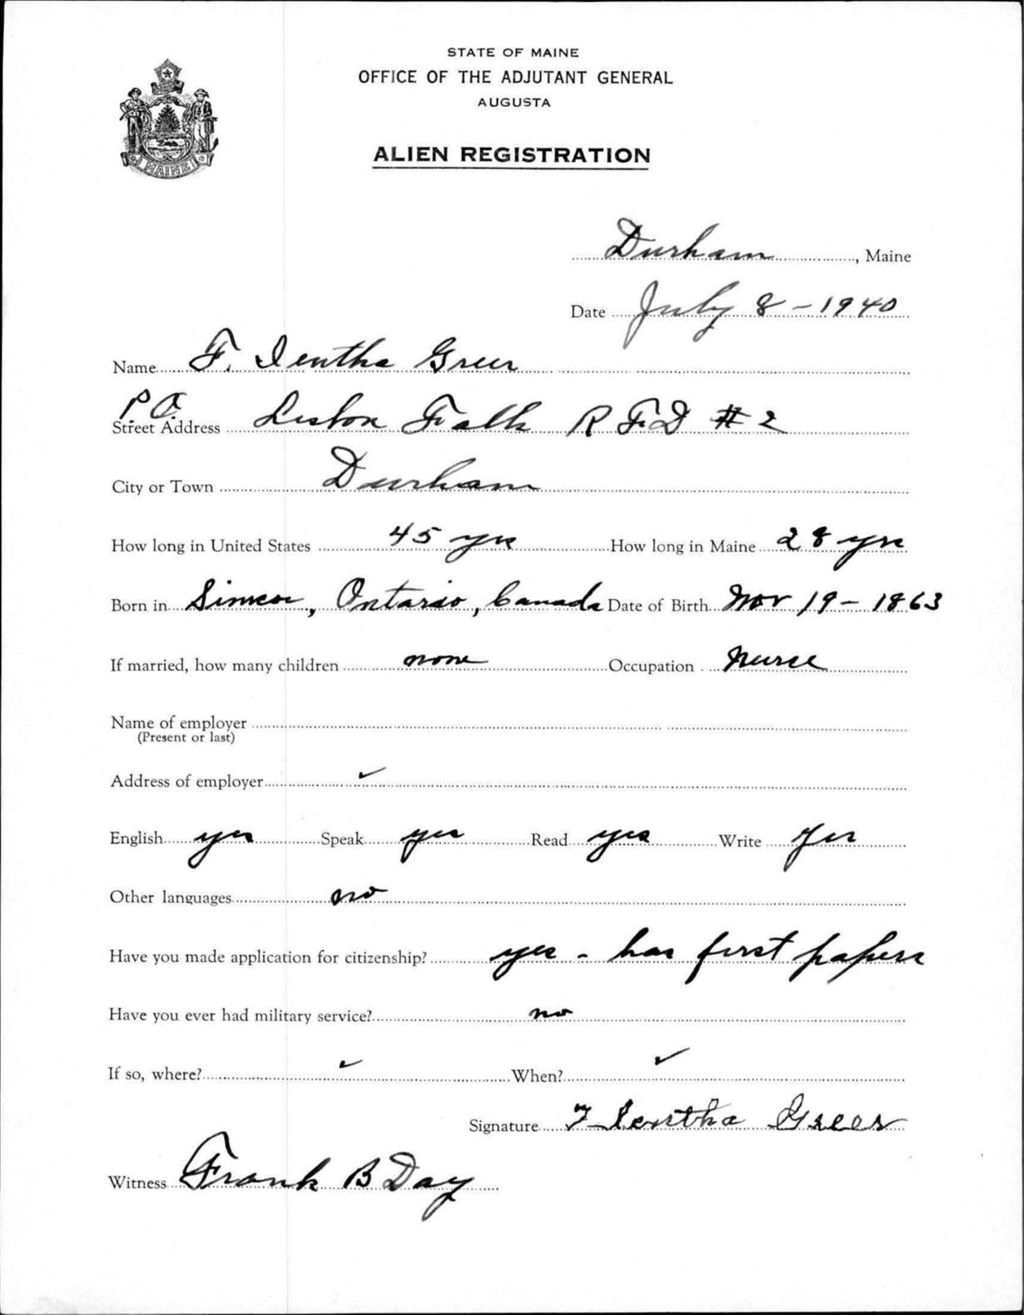 STATE OF MAINE
OFFICE OF THE ADJUTANT GENERAL
AUGUSTA
ALIEN REGISTRATION
MAINE
Durham, Maine
Date July 8 - 1940
Name F. Ientha Greer
P.O.
Street Address Lisbon Falls R F D # 2
City or Town Durham
How long in United States 45 yrs How long in Maine 28 yrs
Born in Simcoe, Ontario, Canada Date of Birth Nov 19 - 1863
If married, how many children none Occupation Nurse
Name of employer
(Present or last)
Address of employer ✓
English yes Speak yes Read yes Write Yes
Other languages no
Have you made application for citizenship? yes - has first papers
Have you ever had military service? no
If so, where? ✓ When? ✓
Signature F Ientha Greer
Witness Frank B Day